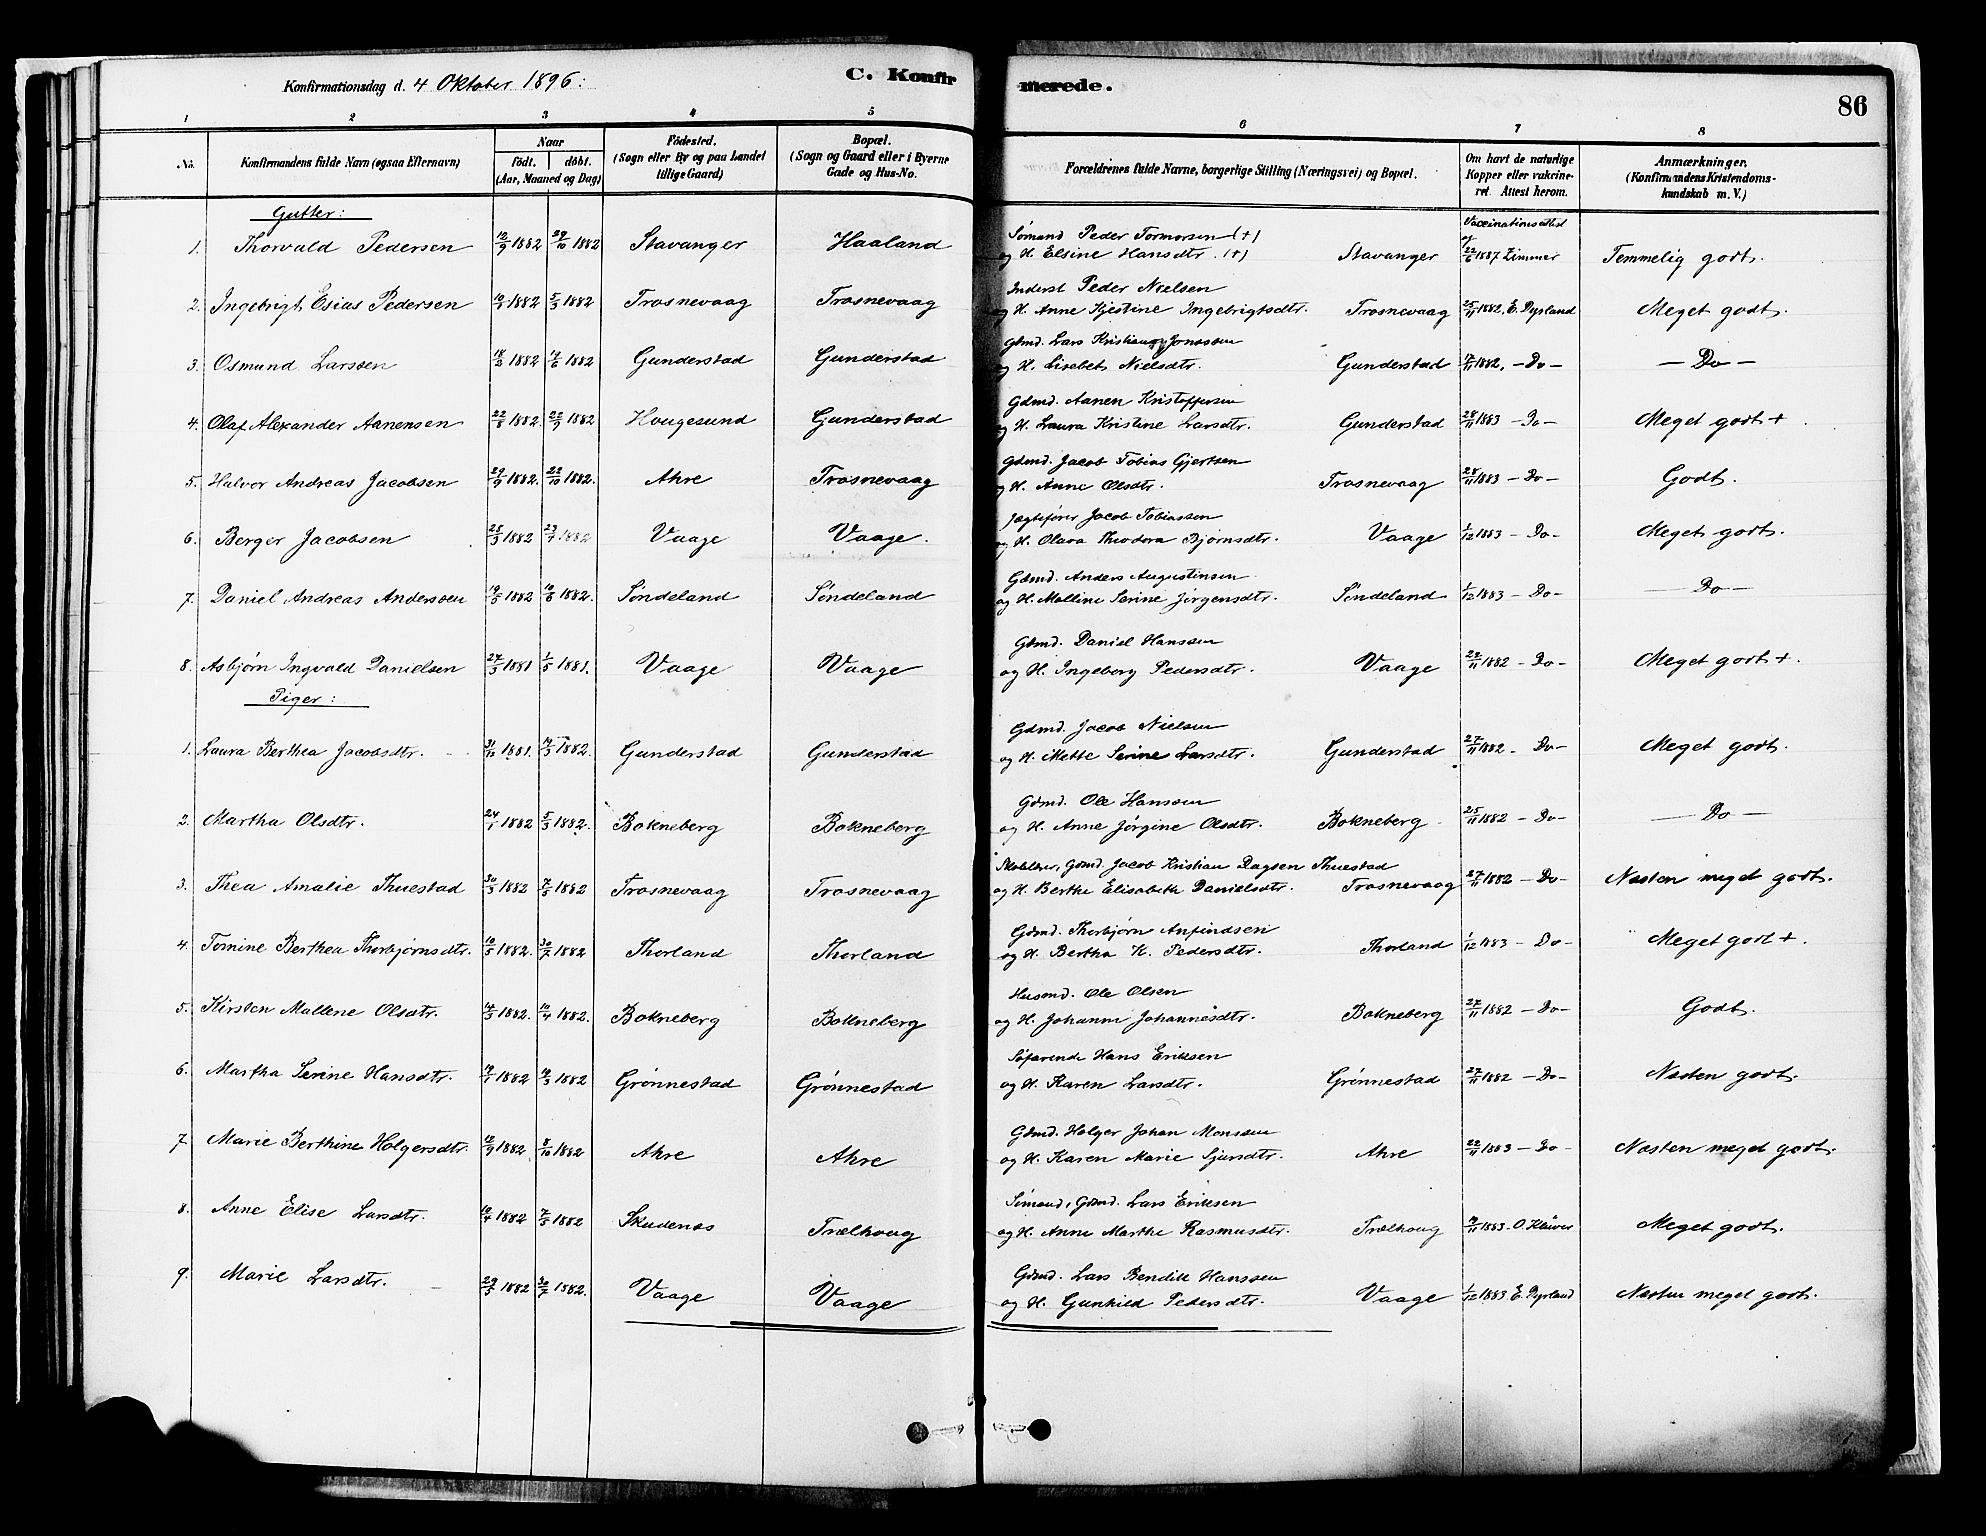 Konfirmationsdag d. 4 Oktober 1896.
C. Konfirmerede.
86
1 2 3 4 5 6 7 8
No.
Konfirmandens fulde Navn (ogsaa Efternavn)
Naar
født. døbt.
(Aar, Maaned og Dag)
Fødested.
(Sogn eller By og paa Landet
tillige Gaard)
Bopæl.
(Sogn og Gaard eller i Byerne
Gade og Hus-No.
Forældrenes fulde Navne, borgerlige Stilling (Næringsvei) og Bopæl.
Om havt de naturlige
Kopper eller vakcine-
ret. Attest herom.
Anmærkninger.
(Konfirmandens Kristendoms-
kundskab m. V.)
Gutter:
Vaccinationsattest
1. Thorvald Pedersen 12/9 1882 29/10 1882 Stavanger Haaland Sømand Peder Tormorsen (+)
og H. Elsine Hansdtr. (+) Stavanger 22/6 1887 Zimmer Temmelig godt.
2. Ingebrigt Esias Pedersen 1882 5/3 1882 Trosnevaag Trosnevaag Inderst Peder Nielsen
og H. Anne Kjestine Ingebrigtsdtr. Trosnevaag 25/11 1882, E. Dyrland Meget godt.
3. Osmund Larsen 18/2 1882 1882 Gunderstad Gunderstad Gbmd. Lars Kristian Jonassen
og H. Lisebet Nielsdtr. Gunderstad 17/11 1882. - Do - - Do -
4. Olaf Alexander Aanensen 22/8 1882. 1882 Hougesund Gunderstad Gdmd. Aanen Kristoffersen
og H. Laura Kristine Larsdtr. Gunderstad 28/11 1883 - Do - Meget godt +
5. Halvor Andreas Jacobsen 29/9 1882. 22/10 1882. Ahre Trosnevaag Gdmd. Jacob Tobias Gjertsen
og H. Anne Olsdtr. Trosnevaag 28/11 1883 - Do - Godt.
6. Berger Jacobsen 25/3 1882 23/7 1882 Vaage Vaage. Jægtefører Jacob Tobiassen
og H. Olava Theodora Bjørnsdtr. Vaage 1/12 1883 - Do - Meget godt.
7. Daniel Andreas Andersen 1882 1882. Søndeland Søndeland Gdmd. Anders Augustinsen
og H. Malline Serine Jørgensdtr. Søndeland 1/12 1883 - Do - - Do -
8. Asbjørn Ingvald Danielsen 27/3 1881 1/5 1881. Vaage Vaage Gbmd. Daniel Hanssen
og H. Ingeborg Pedersdtr. Vaage 22/11 1882 - Do - Meget godt +.
Piger:
1. Laura Berthea Jacobsdtr. 1881. 1882. Gunderstad Gunderstad Gdmd. Jacob Nielsen
og H. Mette Serine Larsdtr. Gunderstad 27/11 1882 - Do - Meget godt.
2. Martha Olsdtr. 24/1 1882 5/3 1882. Bokneberg Bokneberg Gdmd. Ole Hanssen
og H. Anne Jørgine Olsdtr. Bokneberg 25/11 1882 - Do - - Do -
3. Thea Amalie Thuestad 30/3 1882 7/5 1882 Trosnevaag Trosnevaag Gdmd. Jacob Kristian Dagsen Thuestad
og H. Berthe Elisabeth Danielsdtr. Trosnevaag 27/11 1882 - Do - Næsten meget godt.
4. Tomine Berthea Thorbjørnsdtr. 10/5 1882. 30/7 1882 Thorland Thorland Gdmd. Thorbjørn Anfindsen
og H. Bertha H. Pedersdtr. Thorland 1/12 1883 - Do - Meget godt +.
5. Kirsten Mallene Olsdtr. 14/3 1882. 10/4 1882. Bokneberg Bokneberg Husmd. Ole Olsen
og H. Johanne Johannesdtr. Bokneberg 27/11 1882 - Do - Godt.
6. Martha Serine Hansdtr. 1882 1882 Grønnestad Grønnestad Søfarende Hans Eriksen
og H. Karen Larsdtr. Grønnestad 27/11 1882 - Do - Næsten godt.
7. Marie Berthine Holgersdtr. 12/9 1882 8/10 1882 Ahre Ahre Gdmd. Holger Johan Monssen
og H. Karen Marie Sjursdtr. Ahre 22/11 1883 - Do - Næsten meget godt.
8. Anne Elise Larsdtr. 10/4 1882 7/5 1882 Skudenæs Trælhoug Sømand, Gdmd. Lars Eriksen
og H. Anne Marthe Rasmusdtr. Trælhoug 1883. O. Kluwer Meget godt.
9. Marie Larsdtr. 29/5 1882 30/7 1882. Vaage Vaage Gdmd. Lars Bendik Hanssen
og H. Gunhild Pedersdtr. Vaage 1/12 1883 E. Dyrland Næsten meget godt.